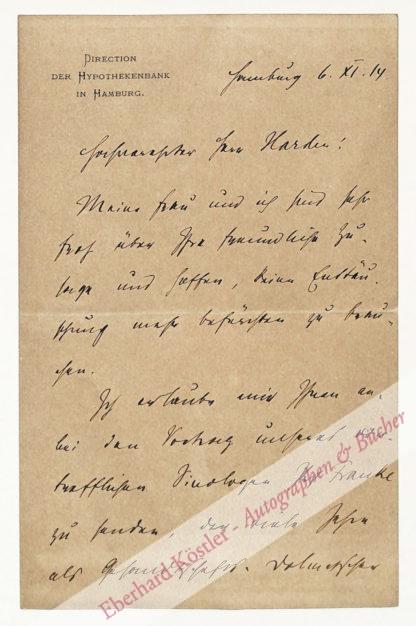 DIRECTION
DER HYPOTHEKENBANK
IN HAMBURG.
Hamburg 6. XI. 14
Hochverehrter Herr Harden!
Meine Frau und ich sind sehr
froh über Ihre freundliche Zu-
sage und hoffen, keine Enttäu-
schung mehr befürchten zu brau-
chen.
Ich erlaube mir Ihnen an-
bei den Vortrag unseres vor-
trefflichen Sinologen Franke
zu senden, der viele Jahre
als Gesandtschafts-Dolmetscher
Eberhard Köstler Autographen & Bücher